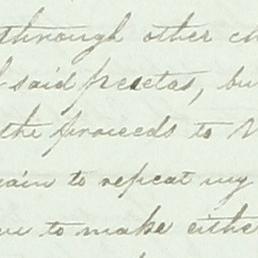 through other
said pesetas, bu
the proceeds to
to repeat my
to make eithe